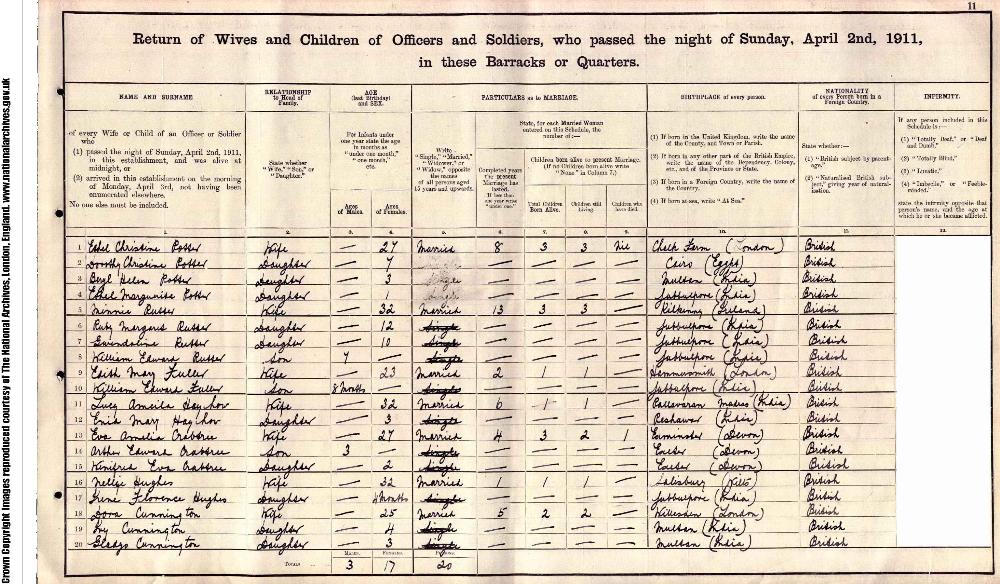 11
Return of Wives and Children of Officers and Soldiers, who passed the night of Sunday, April 2nd, 1911,
in these Barracks or Quarters.
NAME AND SURNAME
of every Wife or Child of an Officer or Soldier who
(1) passed the night of Sunday, April 2nd, 1911, in this establishment, and was alive at midnight, or
(2) arrived in this establishment on the morning of Monday, April 3rd, not having been enumerated elsewhere.
No one else must be included.
RELATIONSHIP to Head of Family.
State whether "Wife," "Son," or "Daughter."
AGE (last Birthday) and SEX.
For Infants under one year state the age in months as "under one month," "one month," etc.
Ages of Males.
Ages of Females.
PARTICULARS as to MARRIAGE.
Write "Single," "Married," "Widower," or "Widow," opposite the names of all persons aged 15 years and upwards.
State, for each Married Woman entered on this Schedule, the number of:—
Completed years the present Marriage has lasted. If less than one year write "under one."
Children born alive to present Marriage. (If no Children born alive write "None" in Column 7.)
Total Children Born Alive.
Children still Living.
Children who have died.
BIRTHPLACE of every person.
(1) If born in the United Kingdom, write the name of the County, and Town or Parish.
(2) If born in any other part of the British Empire, write the name of the Dependency, Colony, etc., and of the Province or State.
(3) If born in a Foreign Country, write the name of the Country.
(4) If born at sea, write "At Sea."
NATIONALITY of every Person born in a Foreign Country.
State whether:—
(1) "British subject by parentage."
(2) "Naturalised British subject," giving year of naturalisation.
INFIRMITY.
If any person included in this Schedule is:—
(1) "Totally Deaf," or "Deaf and Dumb,"
(2) "Totally Blind,"
(3) "Lunatic,"
(4) "Imbecile," or "Feeble-minded,"
state the infirmity opposite that person's name, and the age at which he or she became afflicted.
1. 2. 3. 4. 5. 6. 7. 8. 9. 10. 11. 12.
1 Ethel Christine Potter Wife — 27 Married 8 3 3 Nil Chalk Farm (London) British
2 Dorothy Christine Potter Daughter — 7 — — — — Cairo (Egypt) British
3 Beryl Helen Potter Daughter — 3 Single — — — — Multan (India) British
4 Ethel Marguerite Potter Daughter — 1 Single — — — — Jubbulpore (India) British
5 Minnie Rutter Wife — 32 Married 13 3 3 — Kilkenny (Ireland) British
6 Ruby Margaret Rutter Daughter — 12 Single — — — — Jubbulpore (India) British
7 Gwendoline Rutter Daughter — 10 Single — — — — Jubbulpore (India) British
8 William Edward Rutter Son 7 — Single — — — — Jubbulpore (India) British
9 Edith Mary Fuller Wife — 23 Married 2 1 1 — Hammersmith (London) British
10 William Edward Fuller Son 8 Months — Single — — — — Jubbulpore (India) British
11 Lucy Ameila Wife — 32 Married 6 1 1 — Pallavaram Madras (India) British
12 Enid Mary Daughter — 3 Single — — — — Peshawar (India) British
13 Eva Amelia Crabtree Wife — 27 Married 4 3 2 1 Exminster (Devon) British
14 Arthur Edward Crabtree Son 3 — Single — — — — Exeter (Devon) British
15 Winifred Eva Crabtree Daughter — 2 Single — — — — Exeter (Devon) British
16 Nellie Hughes Wife — 32 Married 1 1 1 — Salisbury (Wilts) British
17 Irene Florence Hughes Daughter — 4 Months Single — — — — Jubbulpore (India) British
18 Dora Cunnington Wife — 25 Married 5 2 2 — Willesden (London) British
19 Ivy Cunnington Daughter — 4 Single — — — — Multan (India) British
20 Gladys Cunnington Daughter — 3 Single — — — — Multan (India) British
MALES. FEMALES. PERSONS.
TOTALS 3 17 20
Crown Copyright Images reproduced courtesy of The National Archives, London, England. www.nationalarchives.gov.uk